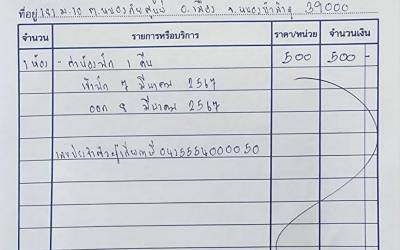 ที่อยู่ 181 ม.10 ต.หนองภัยศูนย์ อ.เมือง จ.หนองบัวลำภู 39000
จำนวน รายการหรือบริการ ราคา/หน่วย จำนวนเงิน
1 ห้อง - ค่าห้องพัก 1 คืน 500 500 -
เข้าพัก 7 มีนาคม 2567
ออก 8 มีนาคม 2567
เลขประจำตัวผู้เสียภาษี 0415554000050